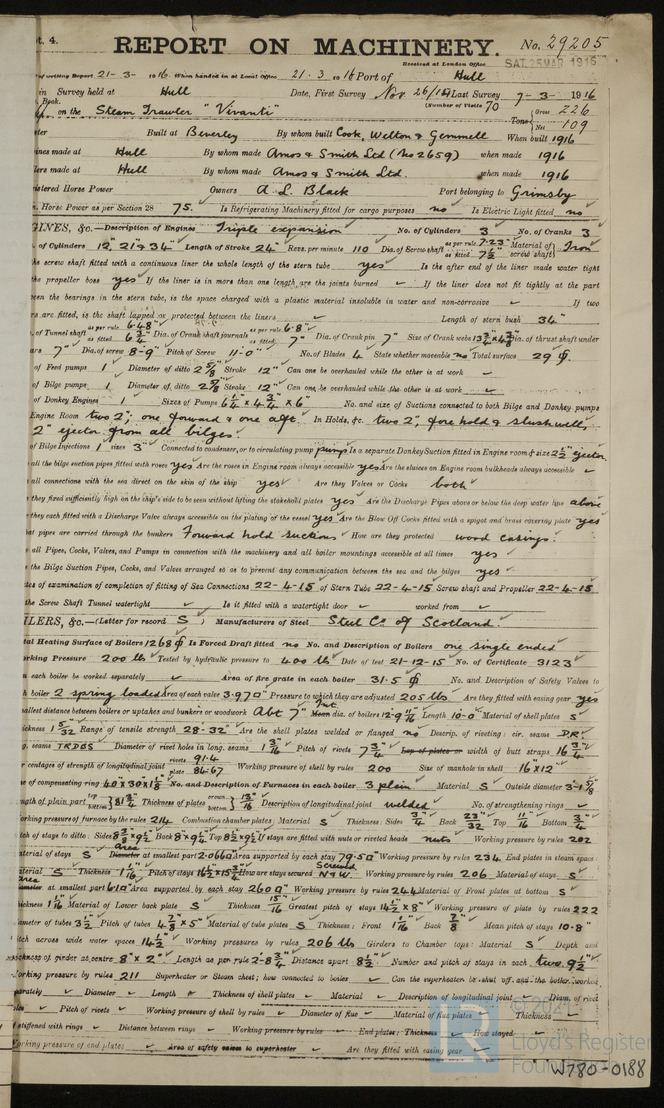 t. 4. REPORT ON MACHINERY. No. 29205
Received at London Office SAT. 25 MAR 1916
of writing Report 21-3-1916 When handed in at Local Office 21.3.1916 Port of Hull
in Survey held at Hull Date, First Survey Nov 26/14 Last Survey 7-3-1916
Book. (Number of Visits 70
on the Steam Trawler "Vivanti" Tons Gross 226 Net 109
ster Built at Beverley By whom built Cook, Welton & Gemmell When built 1916
ines made at Hull By whom made Amos & Smith Ltd (No 2659) when made 1916
lers made at Hull By whom made Amos & Smith Ltd. when made 1916
istered Horse Power Owners A. L. Black Port belonging to Grimsby
. Horse Power as per Section 28 75. Is Refrigerating Machinery fitted for cargo purposes no Is Electric Light fitted no
GINES, &c.—Description of Engines Triple expansion No. of Cylinders 3 No. of Cranks 3
of Cylinders 12" 21" & 34" Length of Stroke 24" Revs. per minute 110 Dia. of Screw shaft as per rule 7.23 as fitted 7½ Material of screw shaft Iron
the screw shaft fitted with a continuous liner the whole length of the stern tube yes Is the after end of the liner made water tight
the propeller boss yes If the liner is in more than one length are the joints burned If the liner does not fit tightly at the part
een the bearings in the stern tube, is the space charged with a plastic material insoluble in water and non-corrosive If two
rs are fitted, is the shaft lapped or protected between the liners Length of stern bush 34"
. of Tunnel shaft as per rule 6.48" as fitted 6¾" Dia. of Crank shaft journals as per rule 6.8" as fitted 7" Dia. of Crank pin 7" Size of Crank webs 13¾ x 4⅜ Dia. of thrust shaft under
ars 7" Dia. of screw 8-9" Pitch of Screw 11-0" No. of Blades 4 State whether moveable no Total surface 29 ф
of Feed pumps 1 Diameter of ditto 2⅝" Stroke 12" Can one be overhauled while the other is at work
of Bilge pumps 1 Diameter of ditto 2⅝" Stroke 12" Can one be overhauled while the other is at work
of Donkey Engines 1 Sizes of Pumps 6¼" x 4¾" x 6" No. and size of Suctions connected to both Bilge and Donkey pumps
Engine Room two 2"; one forward & one aft. In Holds, &c. two 2", fore hold & slushwell;
2" ejector from all bilges.
of Bilge Injections 1 sizes 3" Connected to condenser, or to circulating pump pump Is a separate Donkey Suction fitted in Engine room & size 2½" ejector
all the bilge suction pipes fitted with roses yes Are the roses in Engine room always accessible yes Are the sluices on Engine room bulkheads always accessible
all connections with the sea direct on the skin of the ship yes Are they Valves or Cocks both
they fixed sufficiently high on the ship's side to be seen without lifting the stokehold plates yes Are the Discharge Pipes above or below the deep water line above
they each fitted with a Discharge Valve always accessible on the plating of the vessel yes Are the Blow Off Cocks fitted with a spigot and brass covering plate yes
at pipes are carried through the bunkers Forward hold suctions How are they protected wood casings.
all Pipes, Cocks, Valves, and Pumps in connection with the machinery and all boiler mountings accessible at all times yes
the Bilge Suction Pipes, Cocks, and Valves arranged so as to prevent any communication between the sea and the bilges yes
tes of examination of completion of fitting of Sea Connections 22-4-15 of Stern Tube 22-4-15 Screw shaft and Propeller 22-4-15
the Screw Shaft Tunnel watertight Is it fitted with a watertight door worked from
ILERS, &c.—(Letter for record S) Manufacturers of Steel Steel Co. of Scotland
tal Heating Surface of Boilers 1268 ф Is Forced Draft fitted no No. and Description of Boilers one single ended
orking Pressure 200 lb Tested by hydraulic pressure to 400 lb Date of test 21-12-15 No. of Certificate 3123
n each boiler be worked separately Area of fire grate in each boiler 31.5 ф No. and Description of Safety Valves to
h boiler 2 spring loaded Area of each valve 3.97 □" Pressure to which they are adjusted 205 lb Are they fitted with easing gear yes
allest distance between boilers or uptakes and bunkers or woodwork Abt 7" Int Mean dia. of boilers 12-9 11/16" Length 10-0 Material of shell plates S
ickness 1 5/32" Range of tensile strength 28-32 Are the shell plates welded or flanged no Descrip. of riveting: cir. seams D.R.
g. seams TRDBS Diameter of rivet holes in long. seams 1 3/16" Pitch of rivets 7¾" Lap of plates or width of butt straps 16¾"
r centages of strength of longitudinal joint rivets 91.4 plate 84.67 Working pressure of shell by rules 200 Size of manhole in shell 16" x 12"
e of compensating ring 40 x 30 x 1⅛ No. and Description of Furnaces in each boiler 3 plain Material S Outside diameter 3-1⅝
ngth of plain part top bottom 81¾" Thickness of plates crown bottom 13/16" Description of longitudinal joint welded No. of strengthening rings
orking pressure of furnace by the rules 214 Combustion chamber plates: Material S Thickness: Sides ¾" Back 23/32" Top 11/16" Bottom ¾"
tch of stays to ditto: Sides 8⅞ x 9½ Back 8" x 9¼" Top 8½ x 9½ If stays are fitted with nuts or riveted heads nuts Working pressure by rules 202
aterial of stays S Area Diameter at smallest part 2.066 □" Area supported by each stay 79.5 □" Working pressure by rules 234 End plates in steam space:
aterial S Thickness 1 1/16 Pitch of stays 16½ x 15¾ How are stays secured Screwed N & W Working pressure by rules 206 Material of stays S
area Diameter at smallest part 6.1 □" Area supported by each stay 260 □" Working pressure by rules 244 Material of Front plates at bottom S
hickness 1 1/16" Material of Lower back plate S Thickness 15/16" Greatest pitch of stays 14½ x 8" Working pressure of plate by rules 222
ameter of tubes 3½" Pitch of tubes 4⅞" x 5" Material of tube plates S Thickness: Front 1 1/16" Back ⅞" Mean pitch of stays 10.8"
itch across wide water spaces 14½" Working pressures by rules 206 lb Girders to Chamber tops: Material S Depth and
ickness of girder at centre 8" x 2" Length as per rule 2-8¾ Distance apart 8½" Number and pitch of stays in each two 9½"
orking pressure by rules 211 Superheater or Steam chest; how connected to boiler Can the superheater be shut off and the boiler worked
parately Diameter Length Thickness of shell plates Material Description of longitudinal joint Diam. of rivet
oles Pitch of rivets Working pressure of shell by rules Diameter of flue Material of flue plates Thickness
f stiffened with rings Distance between rings Working pressure by rules End plates: Thickness How stayed
Working pressure of end plates Area of safety valves to superheater Are they fitted with easing gear
Lloyd's Register
Foundation
W780-0188